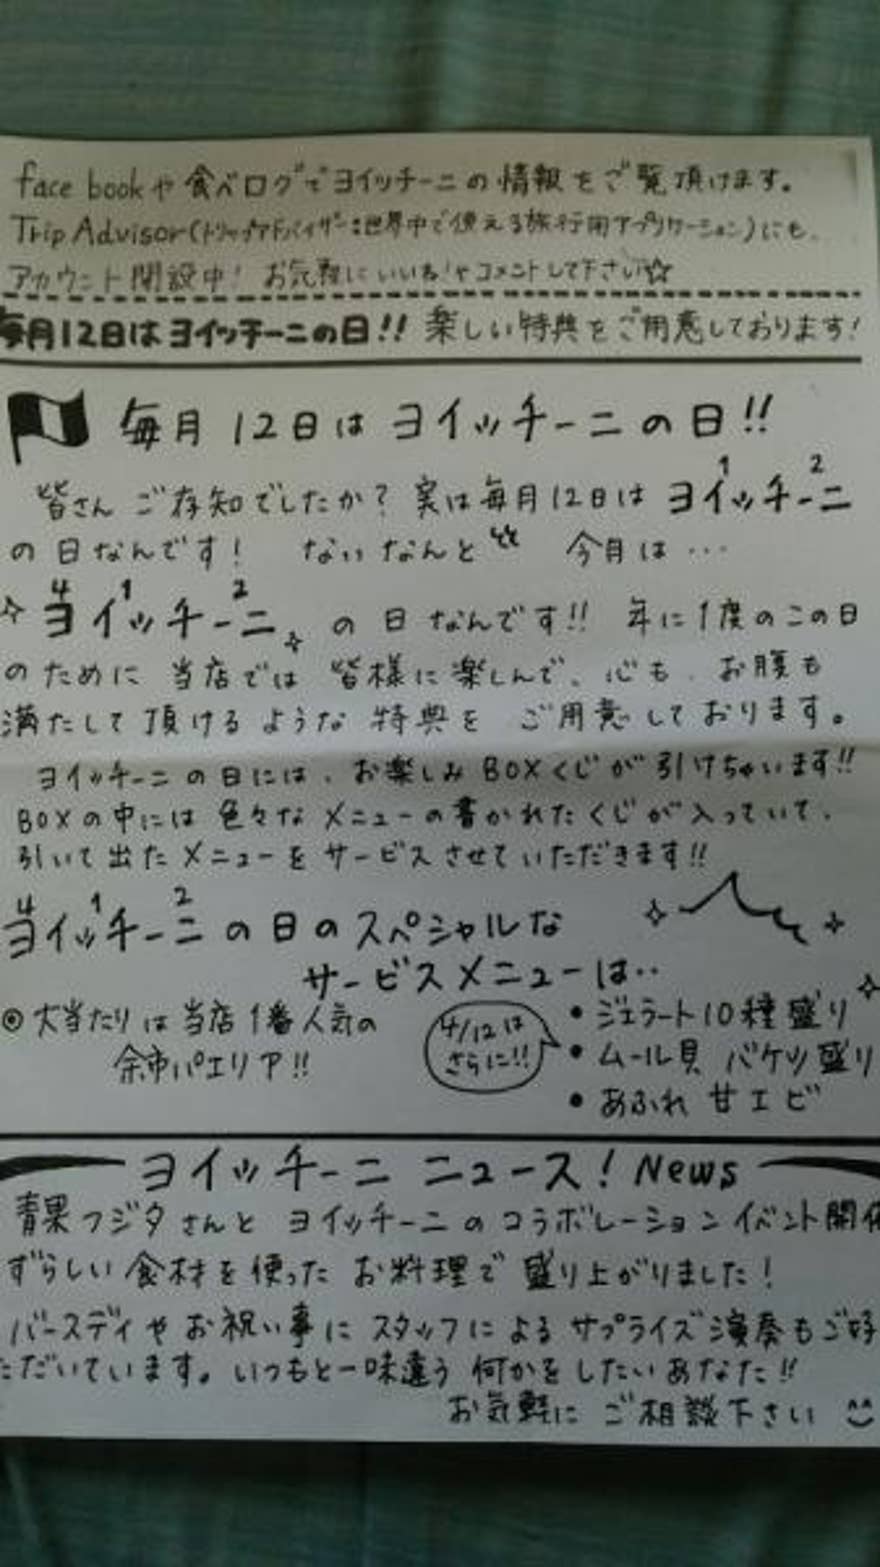 face bookや食べログでヨイッチーニの情報をご覧頂けます。
Trip Advisor(トリップアドバイザー:世界中で使える旅行用アプリケーション)にも、
アカウント開設中! お気軽にいいね!やコメントして下さい☆
毎月12日はヨイッチーニの日!! 楽しい特典をご用意しております!
毎月12日はヨイッチーニの日!!
皆さんご存知でしたか? 実は毎月12日は ヨイッチーニ
1 2
の日なんです! なんなんと 今月は…
4 1 2
ヨイッチーニ の日なんです!! 年に1度のこの日
のために当店では皆様に楽しんで、心も、お腹も
満たして頂けるような特典をご用意しております。
ヨイッチーニの日には、お楽しみBOXくじが引けちゃいます!!
BOXの中には色々なメニューの書かれたくじが入っていて、
引いて出たメニューをサービスさせていただきます!!
4 1 2
ヨイッチーニの日のスペシャルな
サービスメニューは‥
◉大当たりは当店1番人気の
余市パエリア!!
4/12は
さらに!!
• ジェラート10種盛り
• ムール貝 バケツ盛り
• あふれ甘エビ
ヨイッチーニ ニュース! News
青果フジタさんと ヨイッチーニのコラボレーションイベント開催
ずらしい食材を使ったお料理で盛り上がりました!
バースディやお祝い事にスタッフによるサプライズ演奏もご好
ただいています。いつもと一味違う何かをしたいあなた!!
お気軽にご相談下さい